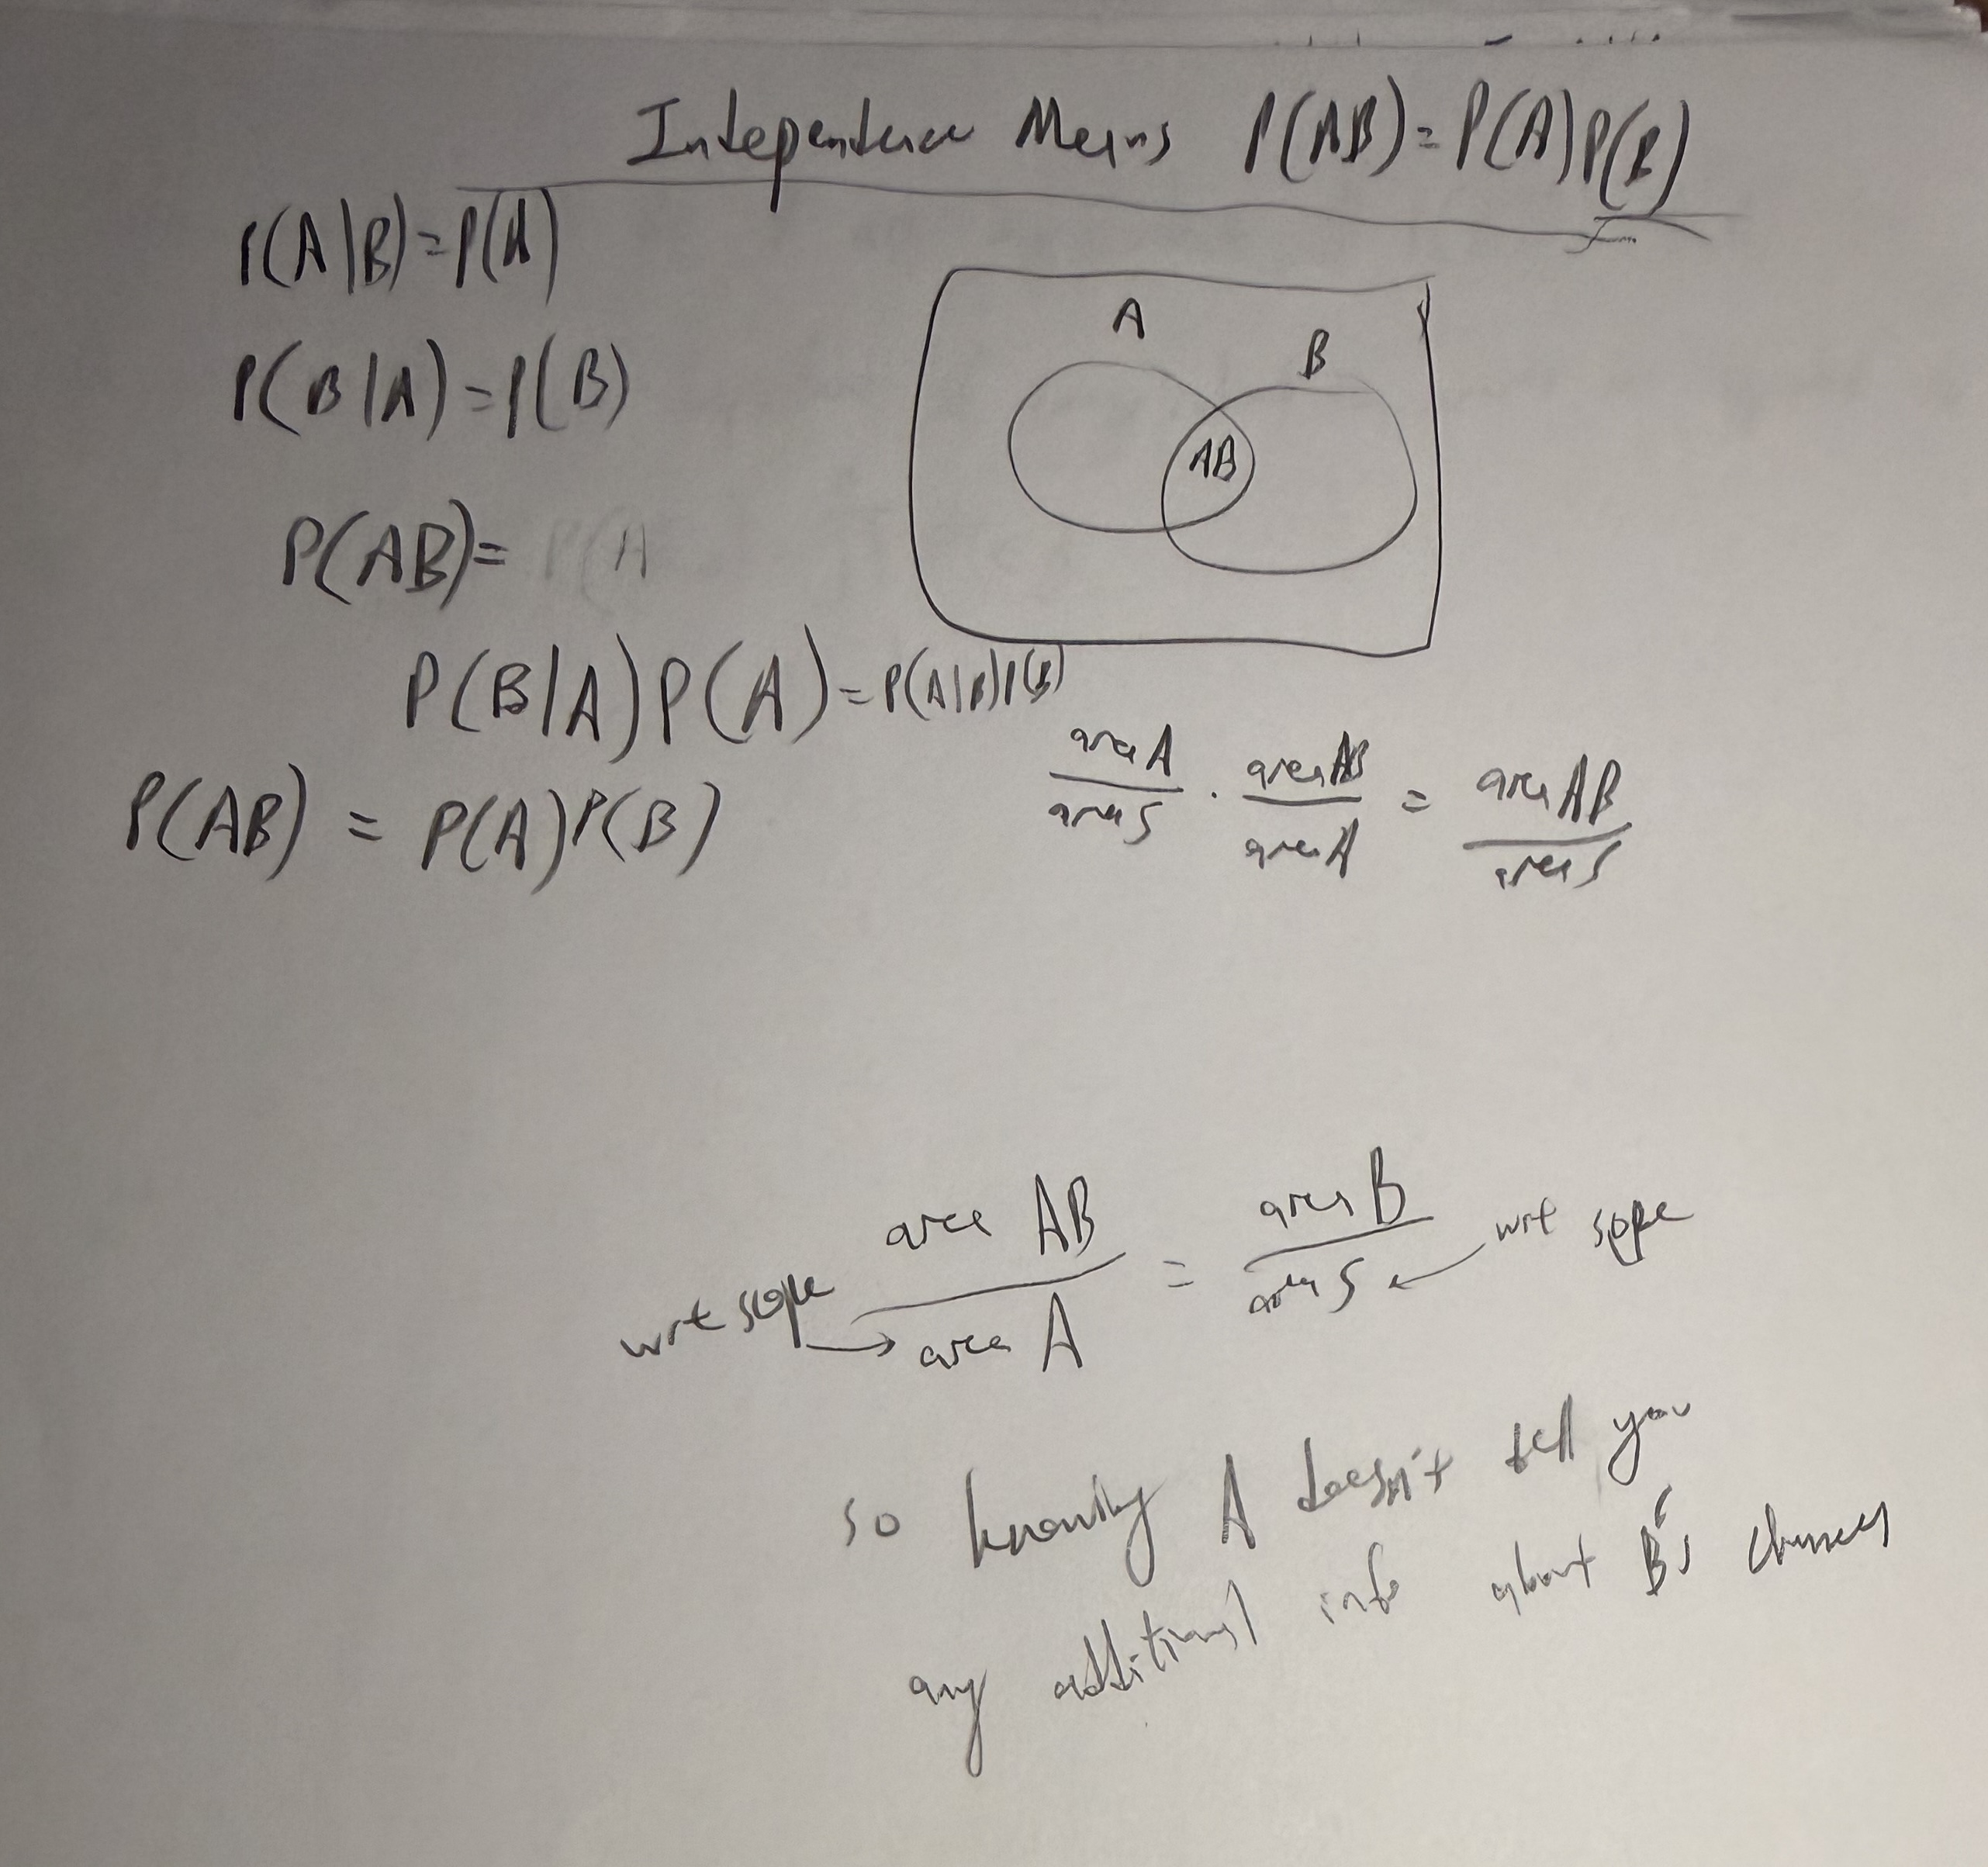 Independence Means P(AB)=P(A)P(B)
P(A|B)=P(A)
P(B|A)=P(B)
A
B
AB
P(AB)= P(A
P(B|A)P(A)=P(A|B)P(B)
area A / area S · area AB / area A = area AB / area S
P(AB) = P(A)P(B)
area AB / area A = area B / area S
wrt scope
wrt scope
so knowing A doesn't tell you
any additional info about B's chances